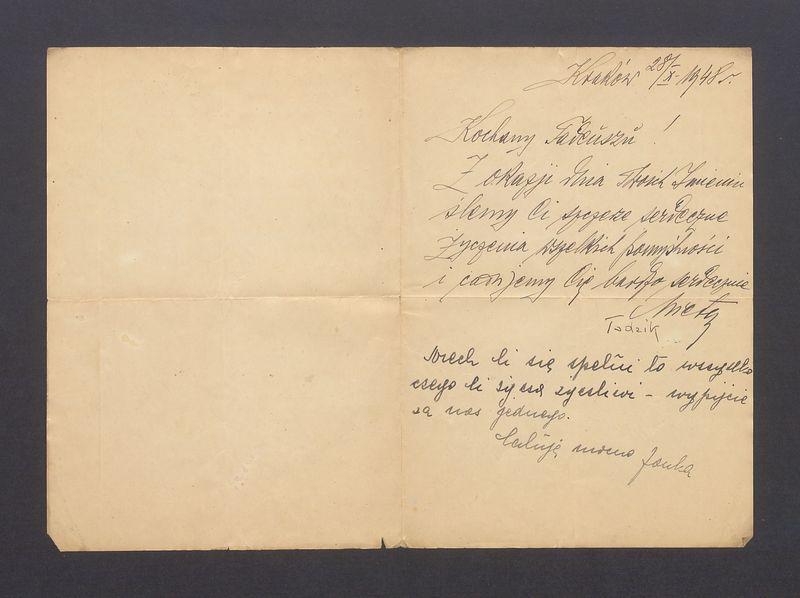 Kraków 28/X 1948 r.
Kochany Tadeuszu!
Z okazji dnia Twoich Imienin
ślemy Ci szczeże serdeczne
życzenia wszelkich pomyślności
i całujemy Cię bardzo serdecznie
Tadzik
Niech Ci się spełni to wszystko
czego Ci życzą życzliwi – wypijcie
za nas jednego.
Całuję mocno Janka